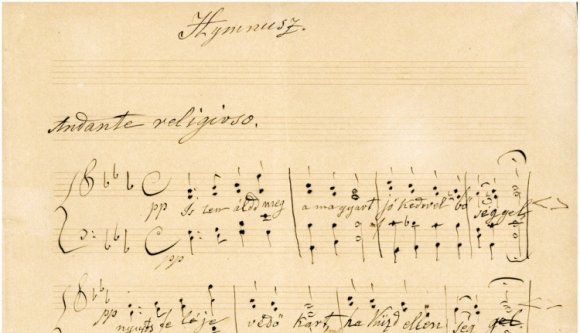 Hymnusz.
Andante religioso.
pp Is ten áldd meg a magyart jó kedvvel bő séggel
pp
pp nyújts fe léje védő kart, ha küzd ellen seg gel.